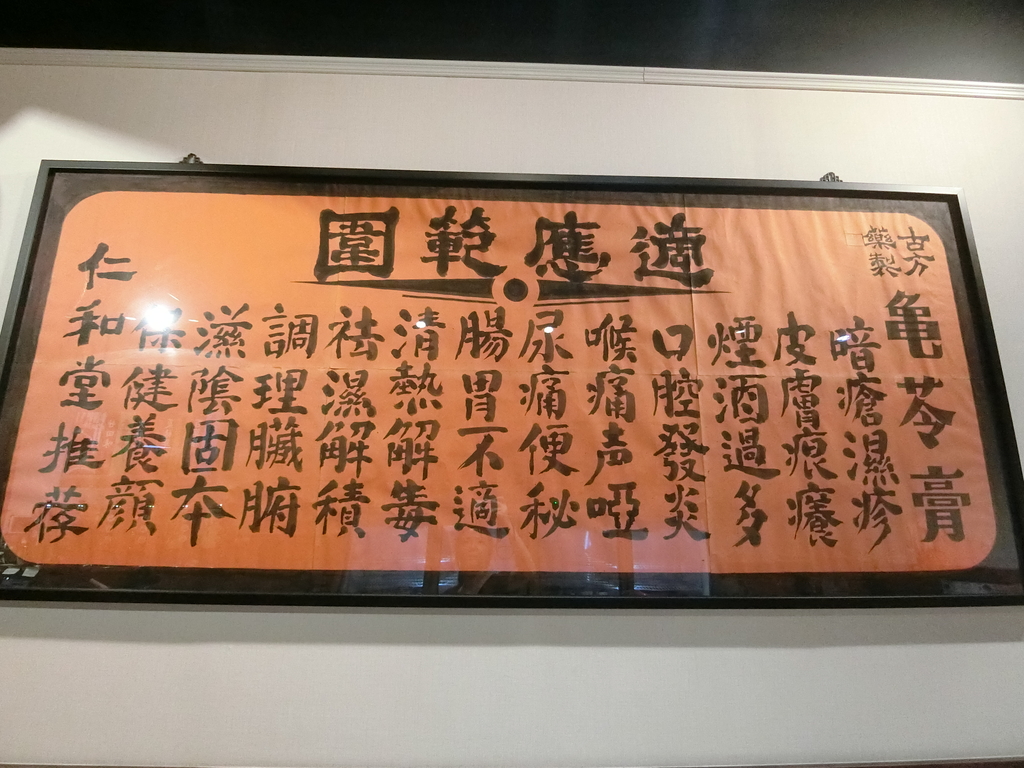 適應範圍
古方
藥製
亀苓膏
暗瘡濕疹
皮膚痕癢
煙酒過多
口腔發炎
喉痛声啞
尿痛便秘
腸胃不適
清熱解毒
祛濕解積
調理臟腑
滋陰固本
保健養顏
仁和堂推荐